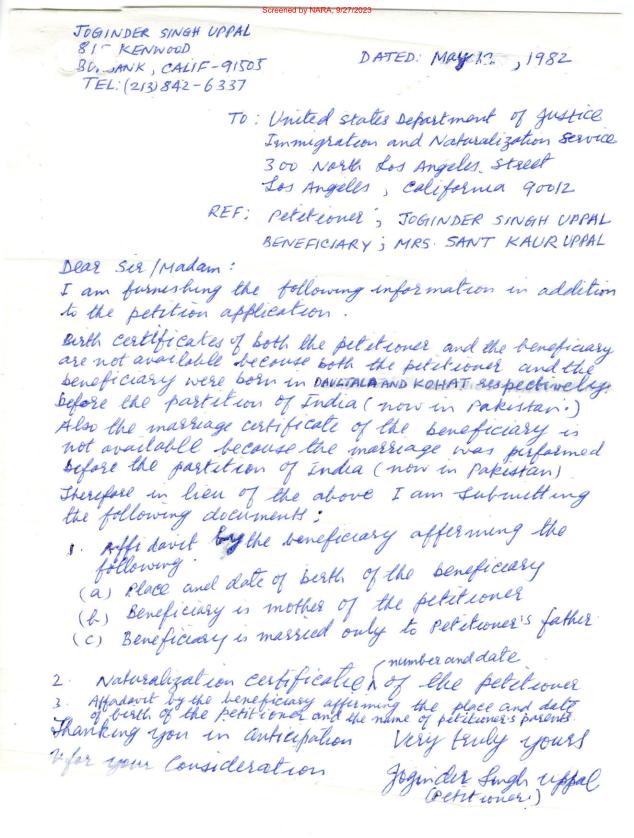 Screened by NARA, 9/27/2023
JOGINDER SINGH UPPAL
815 KENWOOD
BURBANK, CALIF-91505
TEL: (213) 842-6337
DATED: May 12, 1982
TO: United States Department of Justice
Immigration and Naturalization Service
300 North Los Angeles Street
Los Angeles, California 90012
REF: Petitioner; JOGINDER SINGH UPPAL
BENEFICIARY; MRS. SANT KAUR UPPAL
Dear Sir/Madam:
I am furnishing the following information in addition
to the petition application.
Birth certificates of both the petitioner and the beneficiary
are not available because both the petitioner and the
beneficiary were born in DAULTALA AND KOHAT respectively.
before the partition of India (now in Pakistan.)
Also the marriage certificate of the beneficiary is
not available because the marriage was performed
before the partition of India (now in Pakistan)
Therefore in lieu of the above I am submitting
the following documents:
1. Affidavit by the beneficiary affirming the
following
(a) Place and date of birth of the beneficiary
(b) Beneficiary is mother of the petitioner
(c) Beneficiary is married only to Petitioner's father.
number and date
2. Naturalization certificate of the petitioner
3. Affadavit by the beneficiary affirming the place and date
of birth of the petitioner and the name of petitioner's parents.
Thanking you in anticipation
Very truly yours
& for your consideration
Joginder Singh Uppal
(Petitioner)